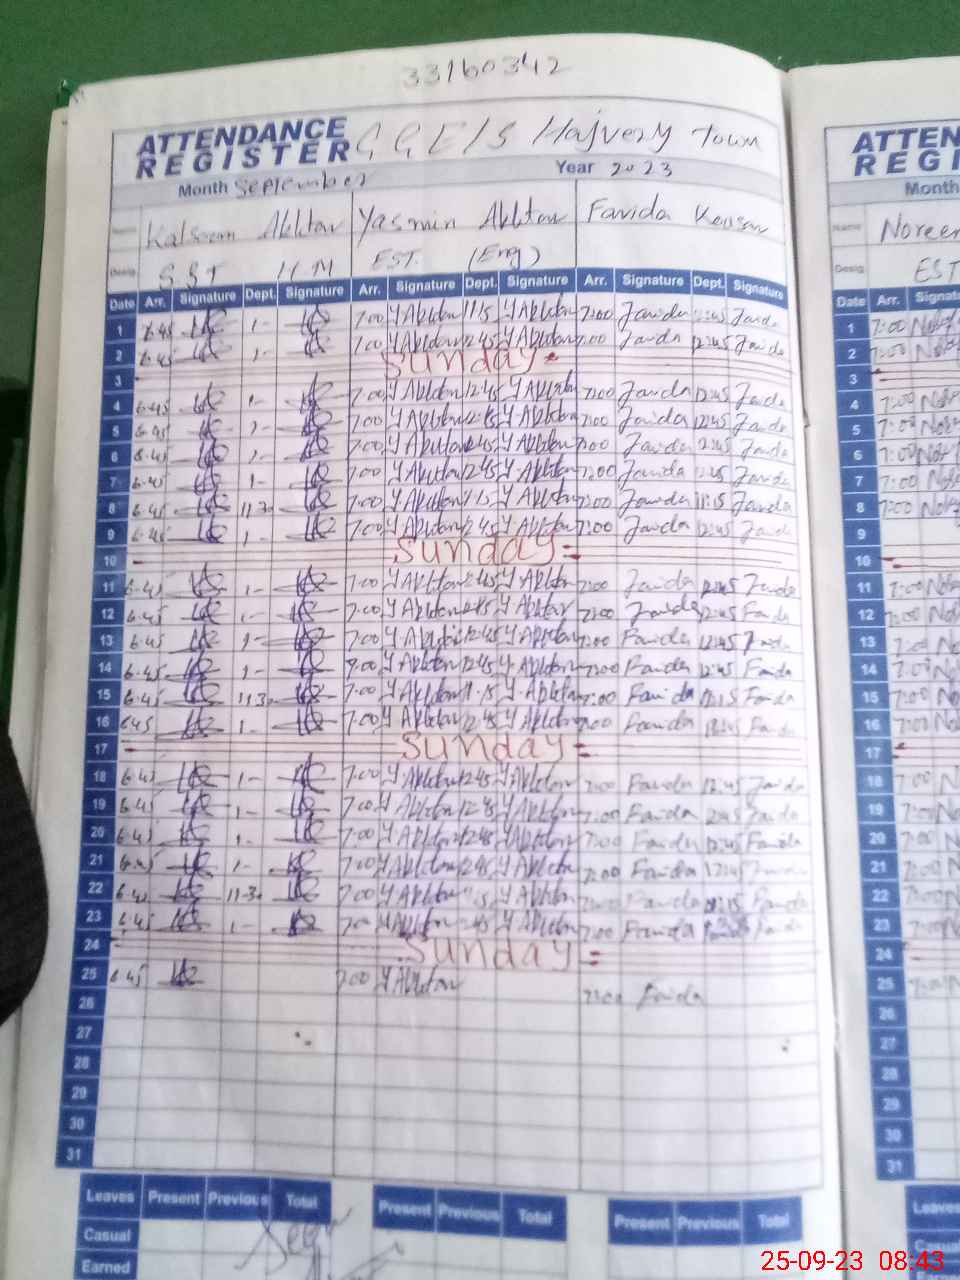 33160342
ATTENDANCE REGISTER G.G.E/S Hajvery Town ATTEN
REGI
Month September Year 2023 Month
Name Kalsoom Akhtar Yasmin Akhtar Farida Kousar Name Noreen
Desig. SST H.M EST. (Eng) Desig. EST
Date Arr. Signature Dept. Signature Arr. Signature Dept. Signature Arr. Signature Dept. Signature Date Arr. Signat
1 6.45 1- 7:00 Y Akhtar 11:15 Y Akhtar 7:00 Farida Farida 1 7:00
2 6.45 1- 7:00 Y Akhtar 12:45 Y Akhtar 7:00 Farida 12:45 Farida 2 7:00
3 Sunday 3
4 6.45 1- 7:00 Y Akhtar 12:45 Y Akhtar 7:00 Farida 12:45 Farida 4 7:00
5 6.45 1- 7:00 Y Akhtar 12:45 Y Akhtar 7:00 Farida 12:45 Farida 5 7:00
6 6.45 1- 7:00 Y Akhtar 12:45 Y Akhtar 7:00 Farida 12:45 Farida 6 7:00
7 6.45 1- 7:00 Y Akhtar 12:45 Y Akhtar 7:00 Farida 12:45 Farida 7 7:00
8 6.45 11.30 7:00 Y Akhtar 11:15 Y Akhtar 7:00 Farida 11:15 Farida 8 7:00
9 6.45 1- 7:00 Y Akhtar 12:45 Y Akhtar 7:00 Farida 12:45 Farida 9
10 Sunday 10
11 6.45 1- 7:00 Y Akhtar 12:45 Y Akhtar 7:00 Farida 12:45 Farida 11 7:00
12 6.45 1- 7:00 Y Akhtar 12:45 Y Akhtar 7:00 Farida 12:45 Farida 12 7:00
13 6.45 1- 7:00 Y Akhtar 12:45 Y Akhtar 7:00 Farida 12:45 Farida 13 7:00
14 6.45 1- Y Akhtar 12:45 Y Akhtar 7:00 Farida 12:45 Farida 14 7:00
15 6.45 11.30 7:00 Y Akhtar 11:15 Y Akhtar 7:00 Farida 11:15 Farida 15 7:00
16 6.45 1- 7:00 Y Akhtar 12:45 Y Akhtar 7:00 Farida 12:45 Farida 16 7:00
17 Sunday 17
18 6.45 1- 7:00 Y Akhtar 12:45 Y Akhtar 7:00 Farida 12:45 Farida 18 7:00
19 6.45 1- 7:00 Y Akhtar 12:45 Y Akhtar 7:00 Farida 12:45 Farida 19 7:00
20 6.45 1- 7:00 Y Akhtar 12:45 Y Akhtar 7:00 Farida 12:45 Farida 20 7:00
21 6.45 1- 7:00 Y Akhtar 12:45 Y Akhtar 7:00 Farida 12:45 21 7:00
22 6.45 11-30 7:00 Y Akhtar Y Akhtar 7:00 Farida 11:15 Farida 22 7:00
23 6.45 1- 7:00 Y Akhtar 12:45 Y Akhtar 7:00 Farida Farida 23 7:00
24 Sunday 24
25 6.45 7:00 Y Akhtar 7:00 Farida 25 7:00
26 26
27 27
28 28
29 29
30 30
31 31
Leaves Present Previous Total Present Previous Total Present Previous Total Leaves
Casual Casual
Earned
25-09-23 08:43